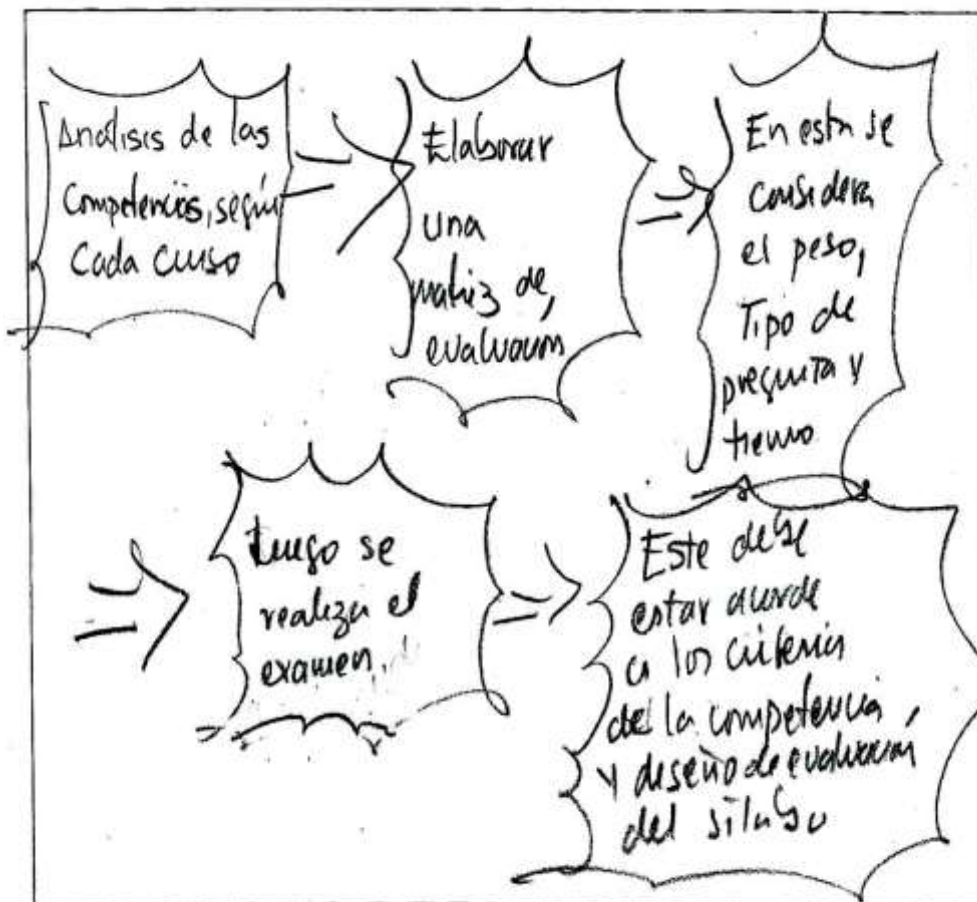 Análisis de las
Competencias, según
Cada curso
Elaborar
una
matriz de,
evaluacion
En esta se
considera
el peso,
Tipo de
pregunta y
tiempo
Luego se
realiza el
examen.
Este debe
estar acorde
a los criterios
de la competencia,
y diseño de evaluación
del silabo